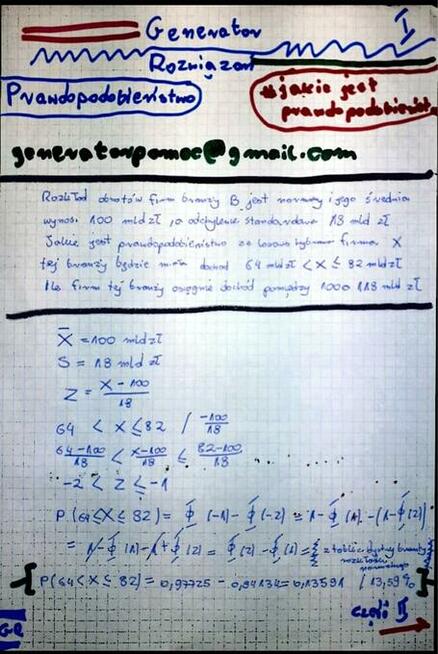 Generator I
Rozwiązań
Prawdopodobieństwo
#jakie jest
prawdopodobieńst
generatorpomoc@gmail.com
Rozkład obrotów firm branży B jest normalny i jego średnia
wynosi 100 mld zł, a odchylenie standardowe 18 mld zł
Jakie jest prawdopodobieństwo że losowo wybrana firma X
tej branży będzie miała dochód 64 mld zł < X ≤ 82 mld zł
Ile firm tej branży osiągnie dochód pomiędzy 100 a 118 mld zł
X̄ = 100 mld zł
S = 18 mld zł
Z = X - 100 / 18
64 < X ≤ 82 / -100 / 18
64-100 / 18 < X-100 / 18 ≤ 82-100 / 18
-2 < Z ≤ -1
P(64 < X ≤ 82) = Φ(-1) - Φ(-2) = 1 - Φ(1) - (1 - Φ(2))
= 1 - Φ(1) - 1 + Φ(2) = Φ(2) - Φ(1) = z tablic dystrybuanty
rozkładu
normalnego
P(64 < X ≤ 82) = 0,97725 - 0,84134 = 0,13591 / 13,59%
część II
GR